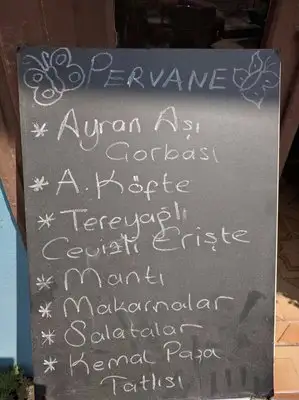 PERVANE
* Ayran Aşı
Çorbası
* A. Köfte
* Tereyağlı
Cevizli Erişte
* Mantı
* Makarnalar
* Salatalar
* Kemal Paşa
Tatlısı